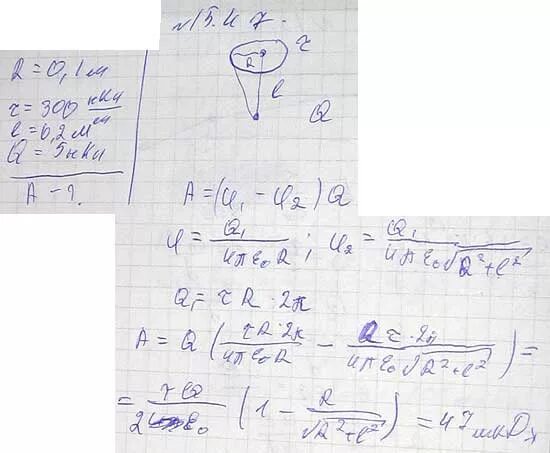 №15.47.
R = 0,1 м
τ = 300 нКл/м
l = 0,2 м
Q = 5 нКл
A - ?
R τ
l
Q
A = (φ₁ - φ₂) Q
φ = Q₁/(4πε₀R) ; φ₂ = Q₁/(4πε₀√(R²+l²))
Q₁ = τR · 2π
A = Q (τR·2π/(4πε₀R) - Rτ·2π/(4πε₀√(R²+l²))) =
= τQ/(2ε₀) (1 - R/√(R²+l²)) = 47 мкДж